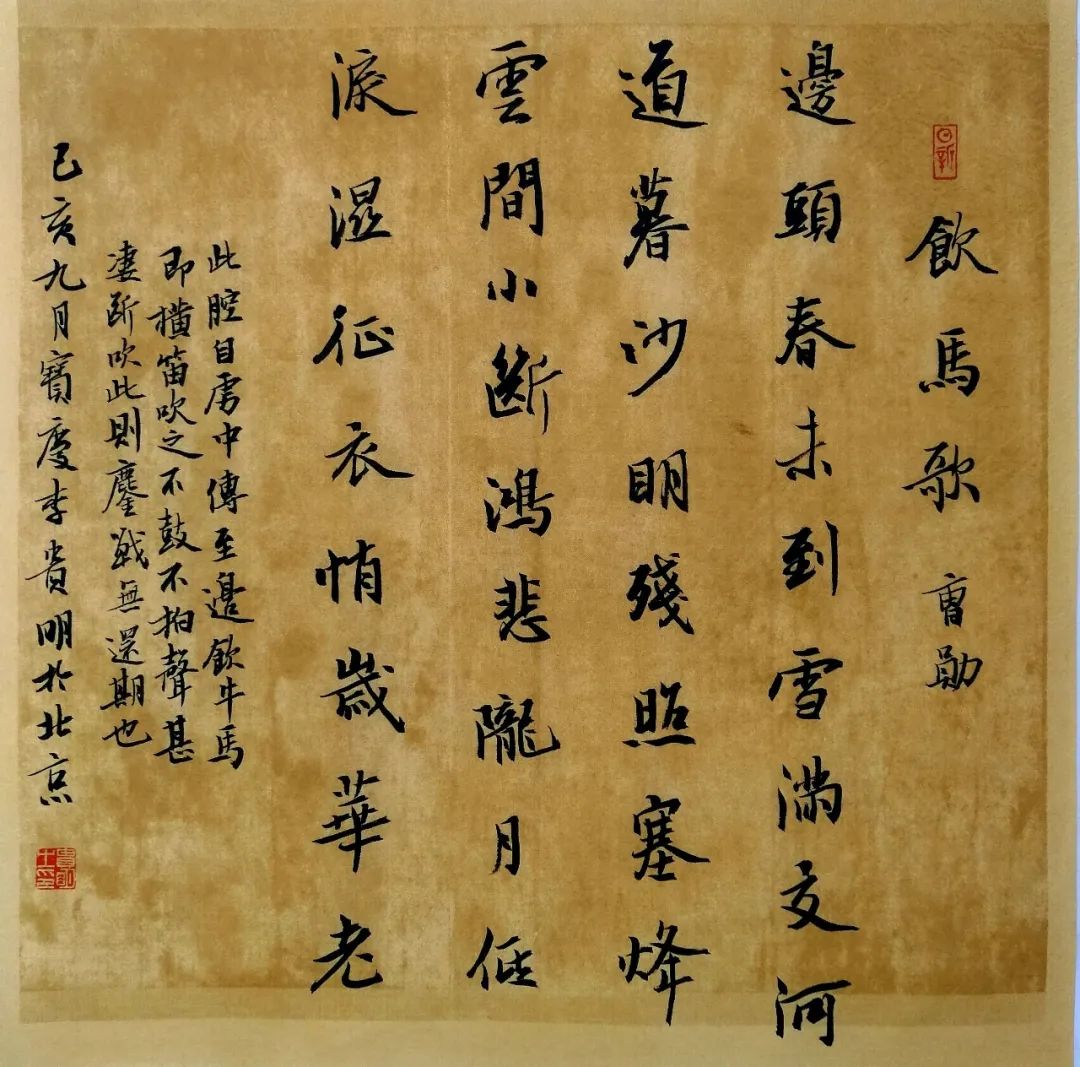 日新
飲馬歌 曹勛
邊頭春未到雪滿交河
道暮沙明殘照塞烽
雲間小斷鴻悲隴月低
淚濕征衣悄歲華老
此腔自虜中傳至邊飲牛馬
即橫笛吹之不鼓不拍聲甚
凄斷吹此則鏖戰無還期也
己亥九月寶慶李貴明於北京